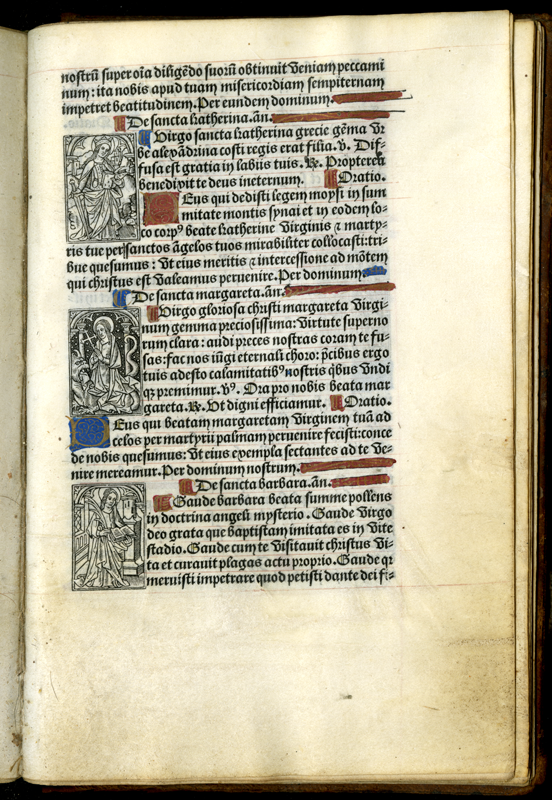 nostrū super oīa diligēdo suorū obtinuit veniam peccami
num: ita nobis apud tuam misericordiam sempiternam
impetret beatitudinem. Per eundem dominum.
De sancta katherina. añ.
Virgo sancta katherina grecie gēma vr
be alexādrina costi regis erat filia. v. Dif-
fusa est gratia in labiis tuis. R. Propterea
benedixit te deus ineternum. Oratio.
Eus qui dedisti legem moysi in sum
mitate montis synai et in eodem lo-
co corpꝰ beate katherine virginis ⁊ marty-
ris tue per sanctos āgelos tuos mirabiliter collocasti: tri-
bue quesumus: vt eius meritis ⁊ intercessione ad mōtem
qui christus est valeamus peruenire. Per dominum
De sancta margareta. añ.
Virgo gloriosa christi margareta virgi-
num gemma preciosissima: virtute superno
rum clara: audi preces nostras coram te fu-
sas: fac nos iūgi eternali choro: p̄cibus ergo
tuis adesto calamitatibꝰ nostris q̄bus vndi
qꝫ premimur. vꝰ. Ora pro nobis beata mar
gareta. R. Vt digni efficiamur. Oratio.
Eus qui beatam margaretam virginem tuā ad
celos per martyrii palmam peruenire fecisti: conce
de nobis quesumus: vt eius exempla sectantes ad te ve-
nire mereamur. Per dominum nostrum.
De sancta barbara. añ.
Gaude barbara beata summe pollens
in doctrina angeli mysterio. Gaude virgo
deo grata que baptistam imitata es in vite
stadio. Gaude cum te visitauit christus vi-
ta et curauit plagas actu proprio. Gaude qꝛ
meruisti impetrare quod petisti dante dei fi-